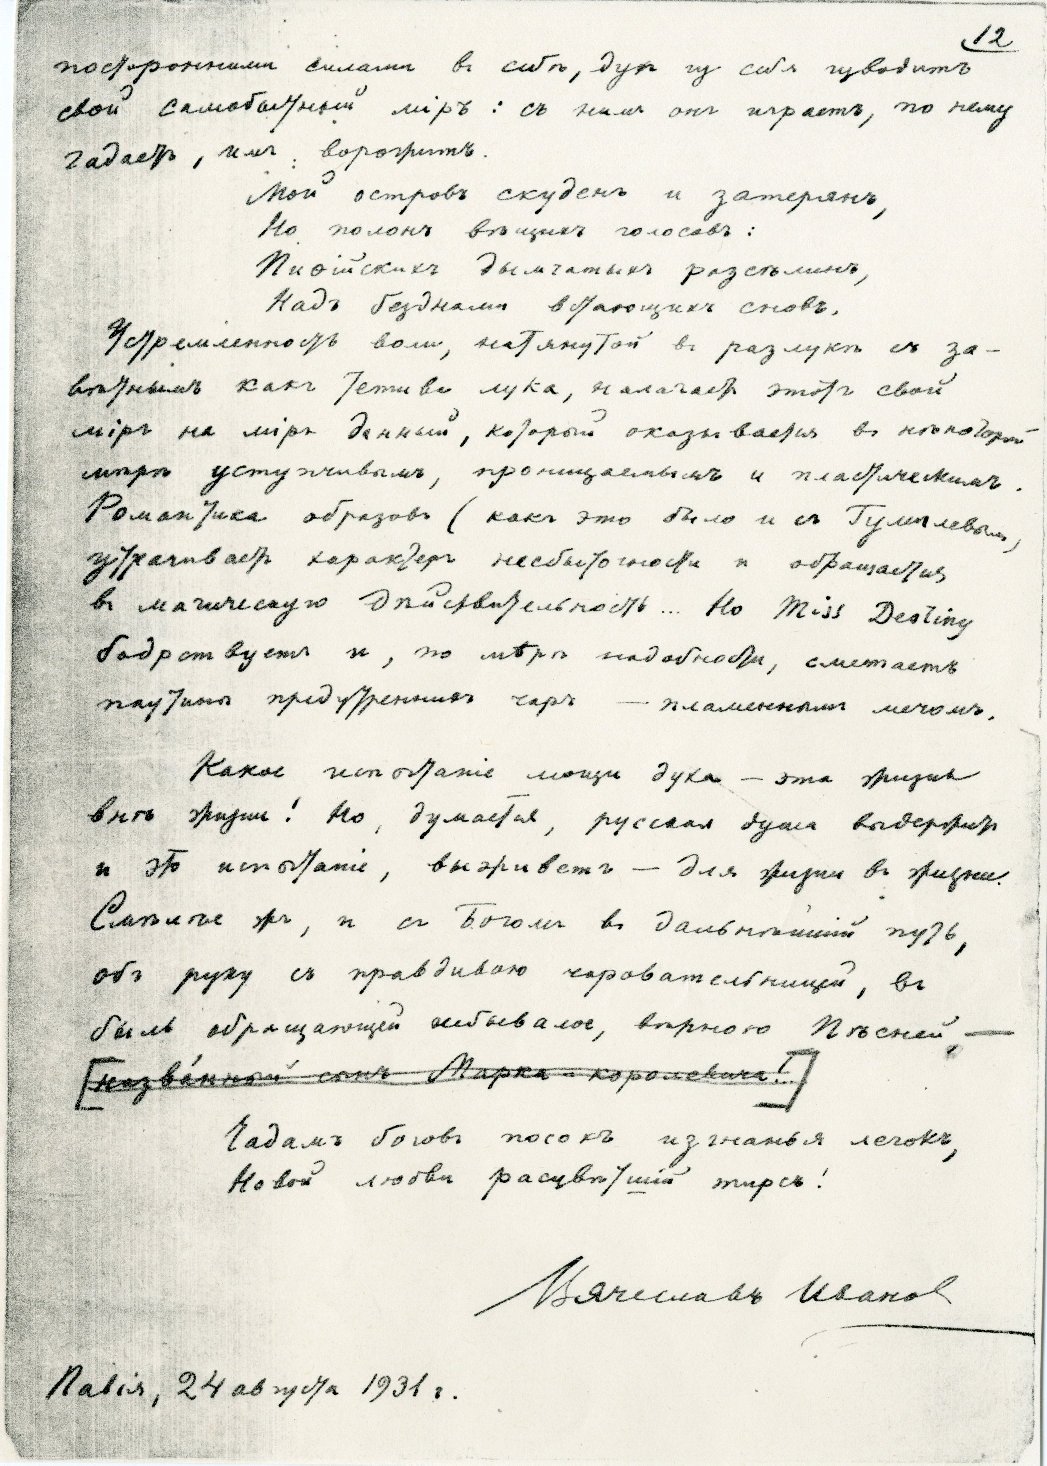 12
посторонними силами въ себѣ, духъ изъ себя изводитъ
свой самобытный міръ: съ нимъ онъ играетъ, по нему
гадаетъ, имъ ворожитъ.
Мой островъ скуденъ и затерянъ,
Но полонъ вѣщихъ голосовъ:
Пиѳійскихъ дымчатыхъ разсѣлинъ,
Надъ безднами встающихъ сновъ.
Устремленность воли, натянутой въ разлукѣ съ за-
вѣтнымъ какъ тетива лука, налагаетъ этотъ свой
міръ на міръ данный, который оказывается въ нѣкоторой
мѣрѣ уступчивымъ, проницаемымъ и пластическимъ.
Романтика образовъ (какъ это было и съ Гумилевымъ)
утрачиваетъ характеръ несбыточности и обращается
въ магическую дѣйствительность... Но Miss Destiny
бодрствуетъ и, по мѣрѣ надобности, сметаетъ
паутины предутреннихъ чаръ — пламеннымъ мечомъ.
Какое испытаніе мощи духа — эта жизнь
внѣ жизни! Но, думается, русская душа выдержитъ
и это испытаніе, выживетъ — для жизни въ жизни.
Смѣлѣе жъ, и съ Богомъ въ дальнѣйшій путь,
объ руку съ правдивою чаровательницей, въ
быль обращающей небывалое, вѣрною Пѣсней, —
[назва́нный сынъ Марка-королевича!..]
Чадамъ боговъ посохъ изгнанья легокъ,
Новой любви расцвѣтшій тирсъ!
Вячеславъ Иванов
Павія, 24 августа 1931 г.